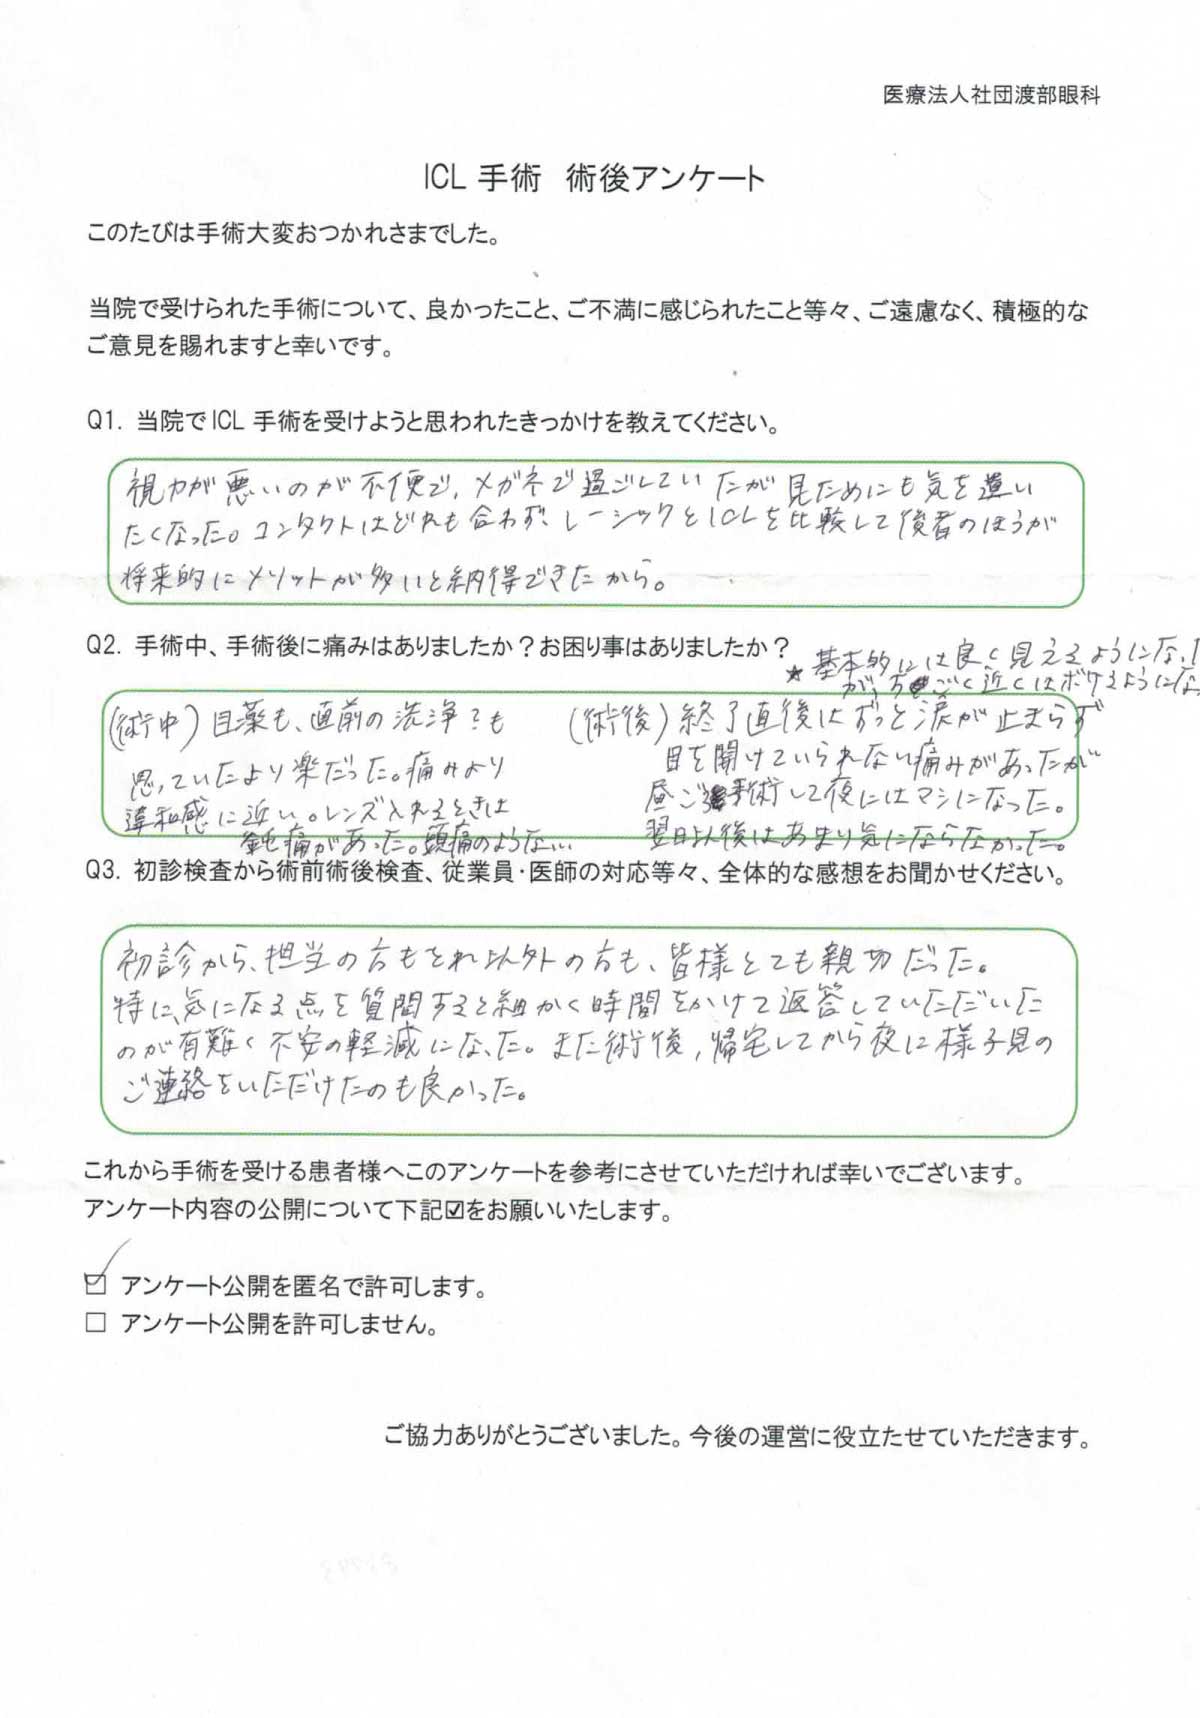 医療法人社団渡部眼科
ICL 手術　術後アンケート
このたびは手術大変おつかれさまでした。
当院で受けられた手術について、良かったこと、ご不満に感じられたこと等々、ご遠慮なく、積極的な
ご意見を賜れますと幸いです。
Q1. 当院でICL 手術を受けようと思われたきっかけを教えてください。
視力が悪いのが不便で、メガネで過ごしていたが見ためにも気を遣い
たくなった。コンタクトはどれも合わず、レーシックとICLを比較して後者のほうが
将来的にメリットが多いと納得できたから。
Q2. 手術中、手術後に痛みはありましたか？お困り事はありましたか？
★基本的には良く見えるようになっ
が、ごく近くはボケるようにな
(術中) 目薬も、直前の洗浄？も
思っていたより楽だった。痛みより
違和感に近い。レンズ入れるときは
鈍痛があった。頭痛のような…
(術後) 終了直後はずっと涙が止まらず
目を開けていられない痛みがあったが
昼ご手術して夜にはマシになった。
翌日以後はあまり気にならなかった。
Q3. 初診検査から術前術後検査、従業員・医師の対応等々、全体的な感想をお聞かせください。
初診から、担当の方もそれ以外の方も、皆様とても親切だった。
特に、気になる点を質問すると細かく時間をかけて返答していただいた
のが有難く不安の軽減になった。また術後、帰宅してから夜に様子見の
ご連絡をいただけたのも良かった。
これから手術を受ける患者様へこのアンケートを参考にさせていただければ幸いでございます。
アンケート内容の公開について下記☑をお願いいたします。
☑ アンケート公開を匿名で許可します。
□ アンケート公開を許可しません。
ご協力ありがとうございました。今後の運営に役立たせていただきます。